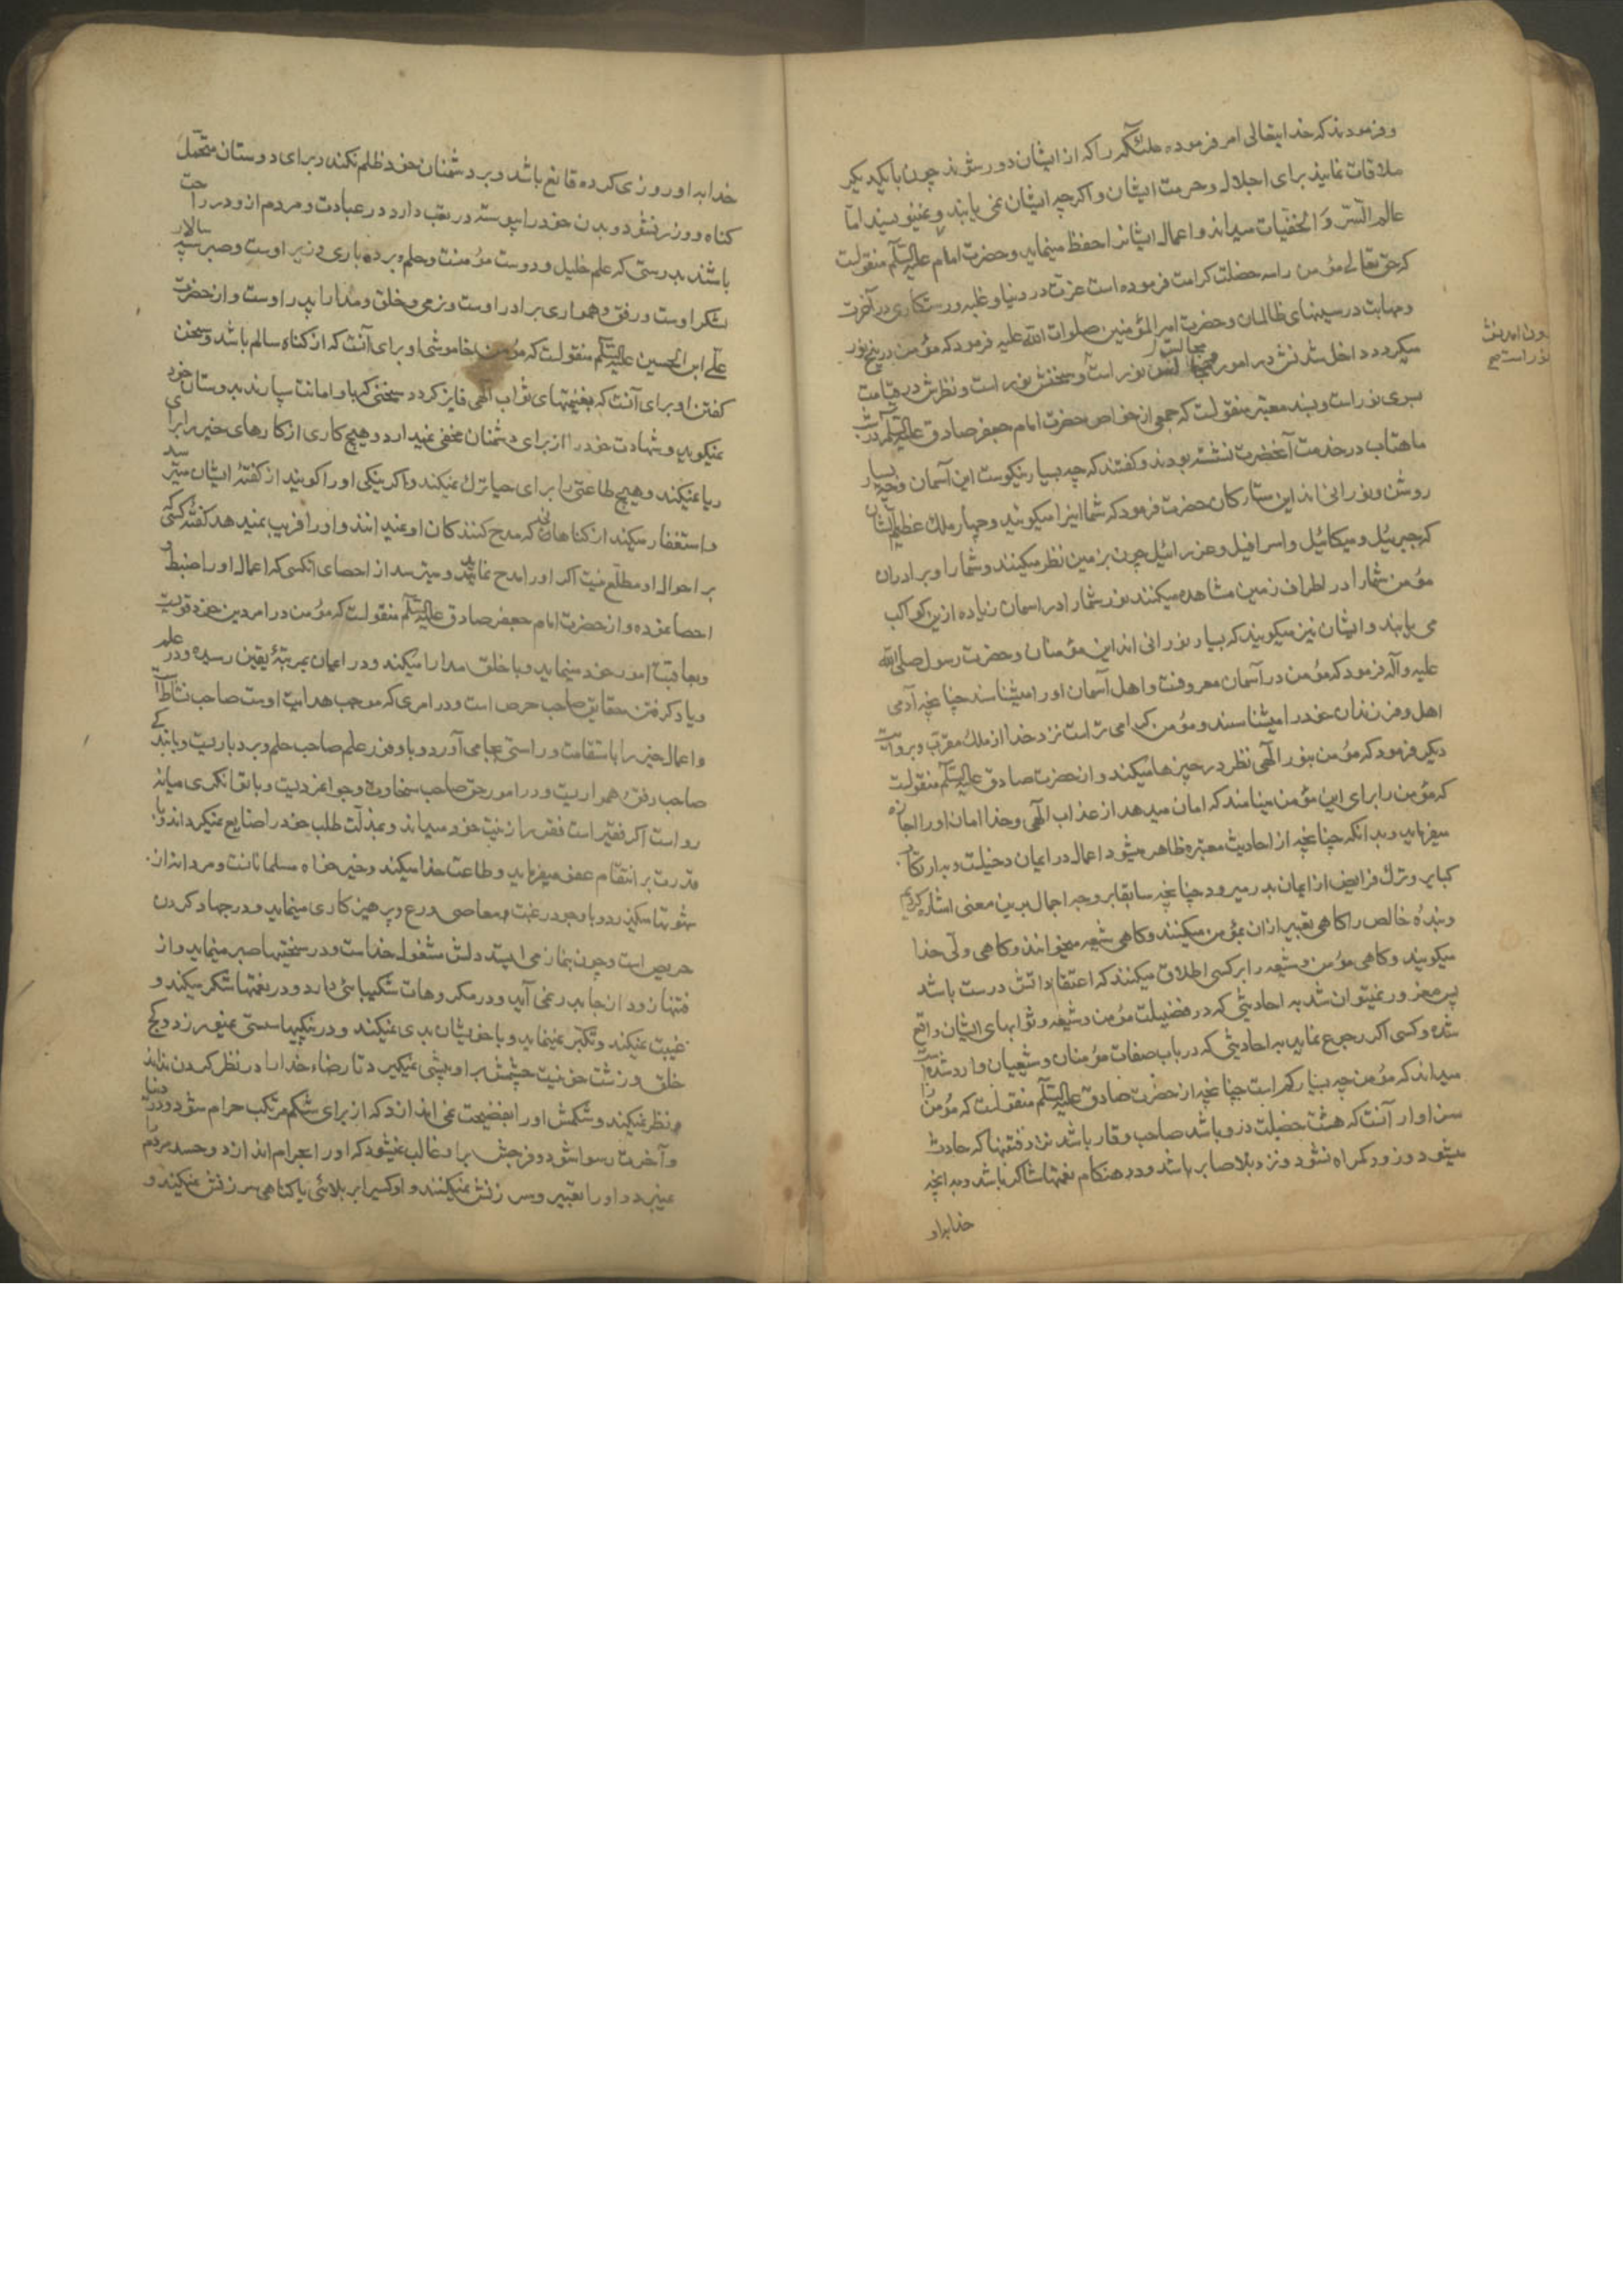 و فرمودند که خدایتعالی امر فرموده ملئکه را که از ایشان دور شوند چون با یکدیگر
ملاقات نمایند برای اجلال و حرمت ایشان و اگرچه ایشان نمی یابند و نمینویسند امّا
عالم السّر و الخفیّات میداند و اعمال ایشانرا حفظ مینماید و حضرت امام علیه السّلم منقولست
که حق تعالی مؤمن را سه خصلت کرامت فرموده است عزت در دنیا و غلبه و رستکاری در آخرت
و مهابت در سینهای ظالمان و حضرت امیرالمؤمنین صلوات الله علیه فرمود که مؤمن در پنج نور
میکردد داخل شدنش در امور نور است و سخنش نور است و نظرش در قیامت
بسوی نور است و بسند معتبر منقولست که جمعی از خواص حضرت امام جعفر صادق علیه السّلم در شب
ماهتاب در خدمت آنحضرت نشسته بودند و کفتند که چه بسیار نیکوست این آسمان و چه بسیار
روشن و نورانی اند این ستارکان حضرت فرمود که شما اینرا میکویید و چهار ملک عظیم الشان
که جبرئیل و میکائیل و اسرافیل و عزرائیل چون بزمین نظر میکنند و شما را و برادران
مؤمن شما را در اطراف زمین مشاهده میکنند نور شما را در اسمان زیاده ازین کواکب
می یابند و ایشان نیز میکویند که بسیار نورانی اند این مؤمنان و حضرت رسول صلی الله
علیه و آله فرمود که مؤمن در آسمان معروفست و اهل آسمان او را میشناسند چنانچه آدمی
اهل و فرزندان خود را میشناسند و مؤمن کرامی تر است نزد خدا از ملک مقرّب و بروایت
دیکر فرمود که مؤمن بنور الٓهی نظر در چیزها میکند و از حضرت صادق علیه السّلم منقولست
که مؤمن را برای این مؤمن مینامند که امان میدهد از عذاب الٓهی و خدا امان او را اجازه
میفرماید و بدانکه چنانچه از احادیث معتبره ظاهر میشود اعمال در ایمان دخیلست و بارتکاب
کبایر و ترک فرایض از ایمان بدر میرود چنانچه سابقا بر وجه اجمال برین معنی اشاره کردیم
و بندهٔ خالص را کاهی تعبیر ازان بمؤمن میکنند و کاهی شیعه میخوانند و کاهی ولی خدا
میکویند و کاهی مؤمن و شیعه را بر کسی اطلاق میکنند که اعتقاداتش درست باشد
پس مغرور نمیتوان شد به احادیثی که در فضیلت مؤمن و شیعه و ثوابهای ایشان واقع
شده و کسی اکر رجوع نماید به احادیثی که در باب صفات مؤمنان و شیعیان وارد شده است
میداند که مؤمن چه بسیار کم است چنانچه از حضرت صادق علیه السّلم منقولست که مؤمن را
سزاوار آنست که هشت خصلت درو باشد صاحب وقار باشد نزد فتنها که حادث
میشود و زود کمراه نشود و نزد بلا صابر باشد و در هنکام نعمتها شاکر باشد و به انچه
خدا به او
مجالست
نور است
خدا به او روزی کرده قانع باشد و بر دشمنان خود ظلم نکند و برای دوستان متحمّل
کناه و وزر نشود و بدن خود را پیوسته در تعب دارد در عبادت و مردم ازو در راحت
باشند بدرستی که علم خلیل و دوست مؤمنست و حلم و بردباری وزیر اوست و صبر سپه سالار
لشکر اوست و رفق و همواری برادر اوست و نرمی و خلق و مدارا پدر اوست و از حضرت
علی ابن الحسین علیه السّلم منقولست که مؤمن خاموشی او برای آنست که از کناه سالم باشد و سخن
کفتن او برای آنست که بغنیمتهای ثواب الٓهی فایز کردد سخنی که باو امانت سپارند بدوستان خود
نمیکوید و شهادت خود را از برای دشمنان مخفی نمیدارد و هیچ کاری از کارهای خیر را برای
ریا نمیکند و هیچ طاعتی را برای حیا ترک نمیکند و اکر نیکی او را کویند از کفتهٔ ایشان میترسد
و استغفار میکند از کناهانی که مدح کنندکان او نمیدانند و او را فریب نمیدهد کفتهٔ کسی که
بر احوال او مطلّع نیست اکر او را مدح نماید و میترسد از احصای انکسی که اعمال او را ضبط و
احصا نموده و از حضرت امام جعفر صادق علیه السّلم منقولست که مؤمن در امر دین خود قویست
و بعاقبت امور خود مینماید و با خلق مدارا میکند و در ایمان بمرتبهٔ یقین رسیده و در علم
و یاد کرفتن حقایق صاحب حرص است و در امری که موجب هدایت اوست صاحب نشاط است
و اعمال خیر را با استقامت و راستی بجا می آورد و با وفور علم صاحب حلم و بردباریست و با زیرکی
صاحب رفق و همواریست و در امور حق صاحب سخاوت و جوانمردیست و با توانکری میانه
رو است اکر فقیر است فقر را زینت خود میداند و بمذلّت طلب خود را ضایع نمیکرداند و با
قدرت بر انتقام عفو میفرماید و طاعت خدا میکند و خیر خواه مسلمانانست و مردانه از
شهوتها میکذرد و با وجود رغبت بمعاصی ورع و پرهیزکاری مینماید و در جهاد کردن
حریص است و چون بنماز می ایستد دلش مشغول خداست و در سختیها صبر مینماید و از
فتنها زود از جا بدر نمی آید و در مکروهات شکیبائی دارد و در نعمتها شکر میکند و
غیبت نمیکند و تکبّر نمینماید و با خویشان بدی نمیکند و در نیکیها سستی نمیورزد و کج
خلق و زشت خو نیست چشمش بر او پیشی نمیکیرد تا رضاء خدا را در نظر کردن نداند
نظر نمیکند و شکمش او را بفضیحت نمی اندازد که از برای شکم مرتکب حرام شود و در دنیا
و آخرت رسوا شود و فرجش براو غالب نمیشود که او را بحرام اندازد و حسد مردم
نمیبرد و او را تعییر و سرزنش نمیکنند و او کسیرا بر بلائی یا کناهی سرزنش نمیکند و